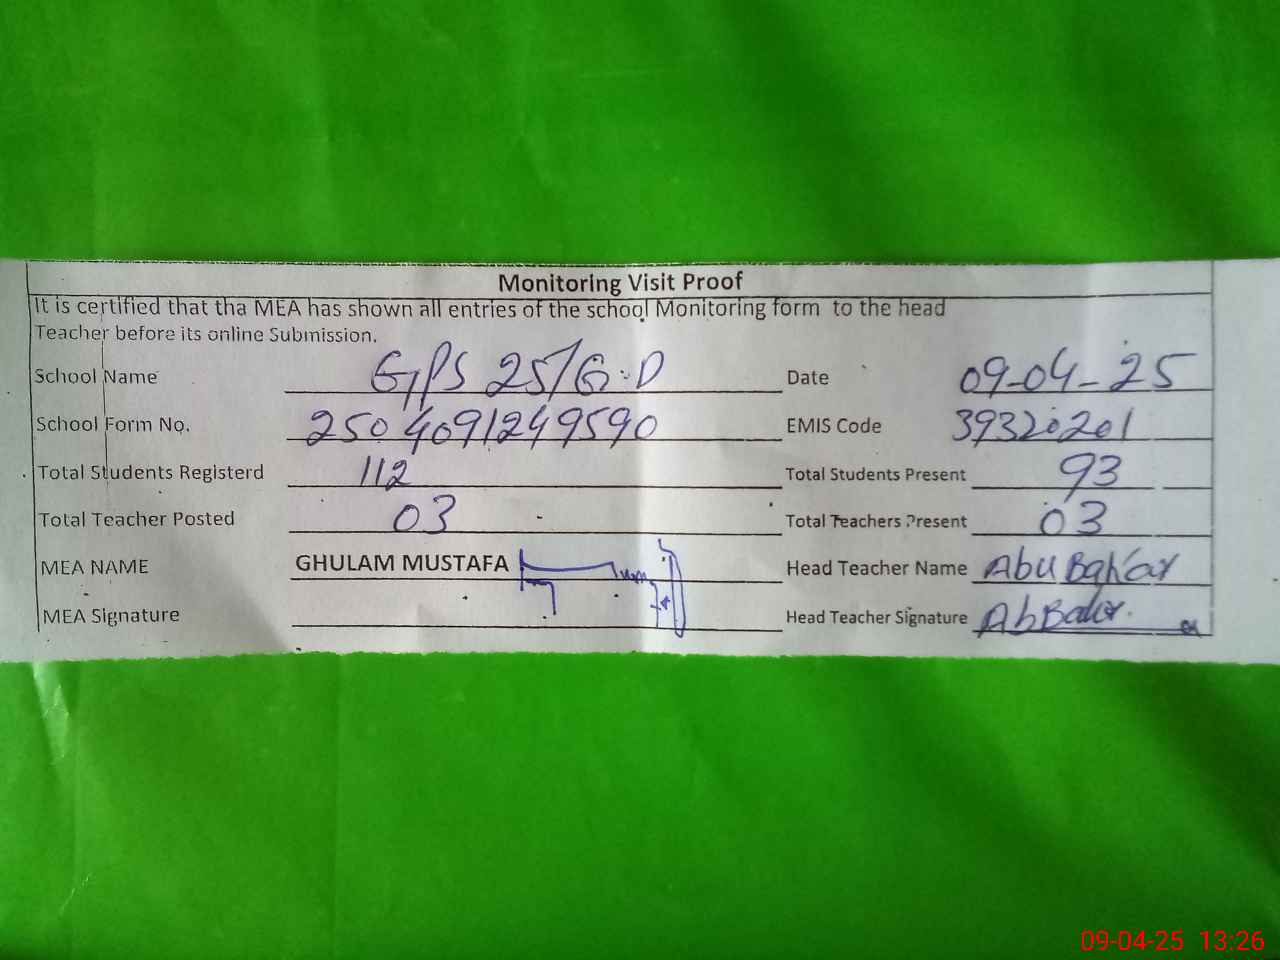 Monitoring Visit Proof
It is certified that tha MEA has shown all entries of the school Monitoring form to the head
Teacher before its online Submission.
School Name GPS 25/G.D Date 09-04-25
School Form No. 2504091249590 EMIS Code 39320201
Total Students Registerd 112 Total Students Present 93
Total Teacher Posted 03 Total Teachers Present 03
MEA NAME GHULAM MUSTAFA Head Teacher Name Abu Bakar
MEA Signature Head Teacher Signature AbBakr.
09-04-25 13:26